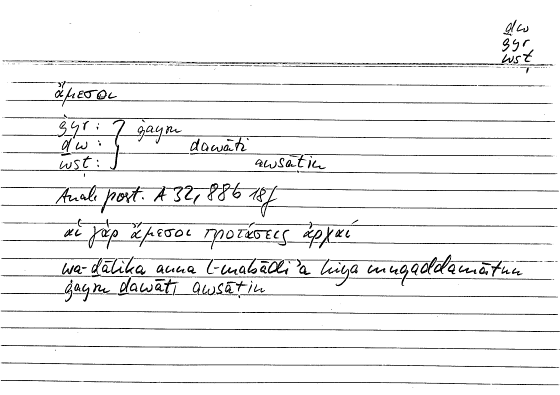 ḏw
ġyr
wsṭ
ἄμεσοι
ġyr : } ġayru
ḏw : ḏawāti
wsṭ : awsāṭin
Anal. post. A 32, 88b 18f
αἱ γὰρ ἄμεσοι προτάσεις ἀρχαί
wa-ḏālika anna l-mabādi'a hiya muqaddamātun
ġayru ḏawāti awsāṭin